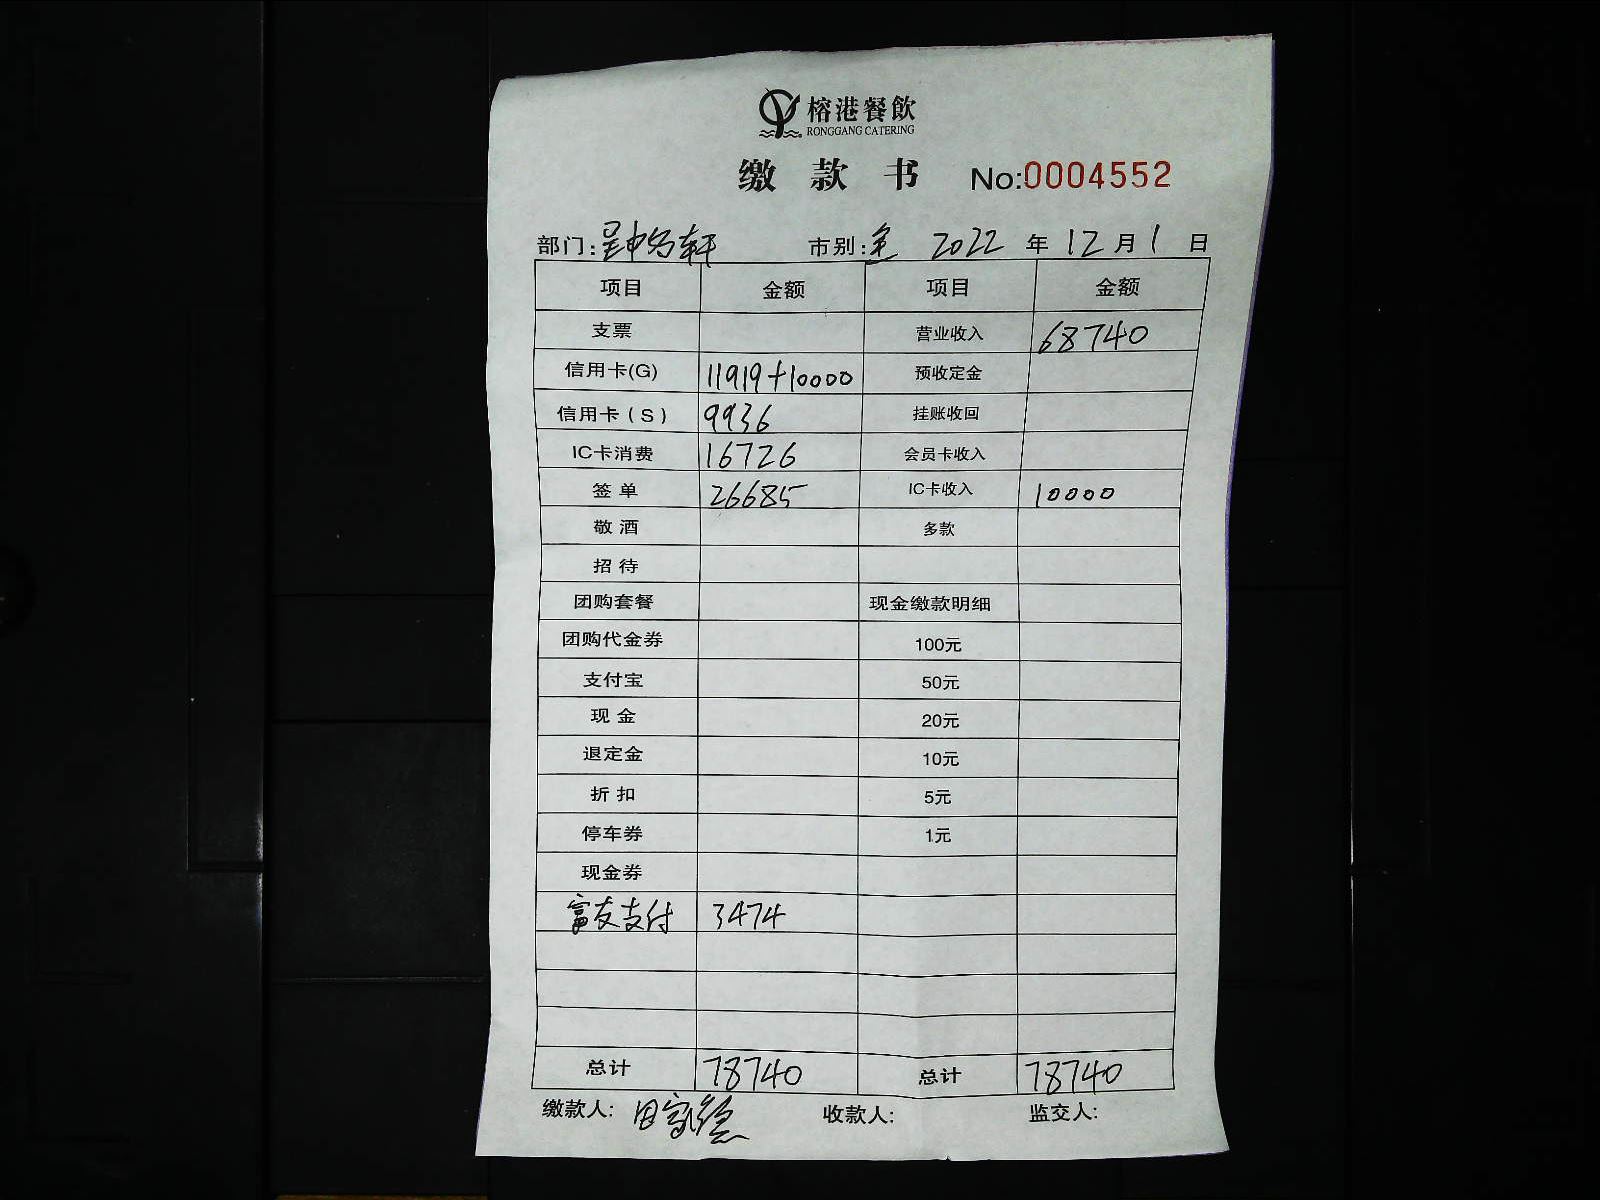 榕港餐飲
RONGGANG CATERING
缴款书 No:0004552
部门: 市别:全 2022年12月1日
项目 金额 项目 金额
支票 营业收入 68740
信用卡(G) 11919+10000 预收定金
信用卡(S) 9936 挂账收回
IC卡消费 16726 会员卡收入
签单 26685 IC卡收入 10000
敬酒 多款
招待
团购套餐 现金缴款明细
团购代金券 100元
支付宝 50元
现金 20元
退定金 10元
折扣 5元
停车券 1元
现金券
富友支付 3474
总计 78740 总计 78740
缴款人: 收款人: 监交人: